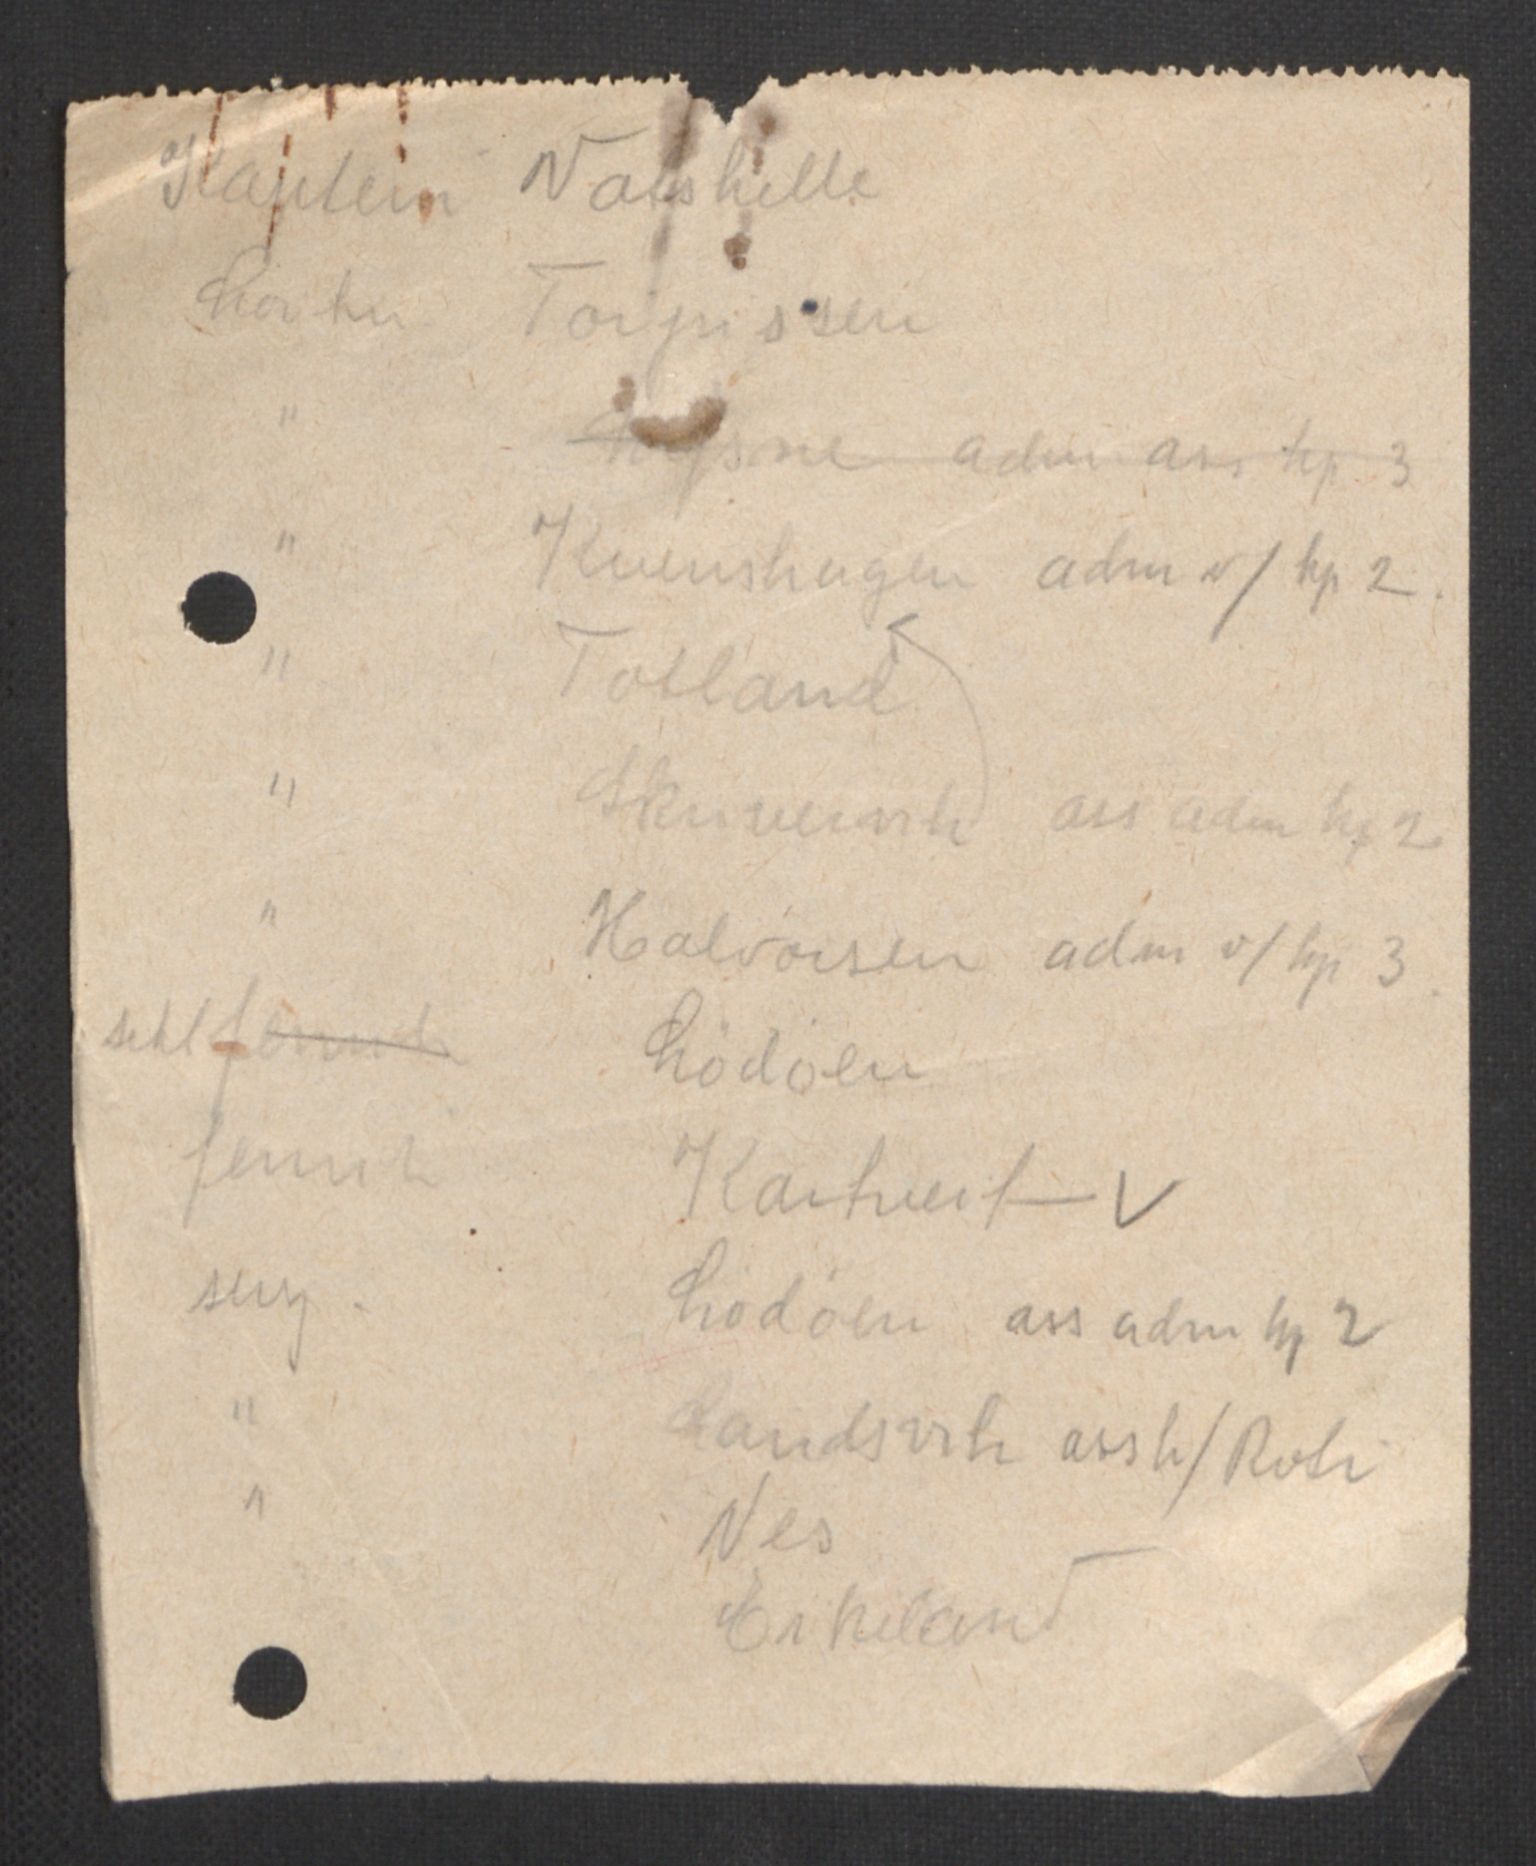 Kaptein Natshelle
Löitn. Torjussen
" adm ass kp 3
" Kvenshagen adm v/ kp 2.
" Totland
" Skrivervik ass adm kp 2
" Halvorsen adm v/ kp 3.
sekl Lödöen
fenrik Kartveit V
serg. Lödöen ass adm kp 2
" Landsvik ass
" Nes
Erkeland